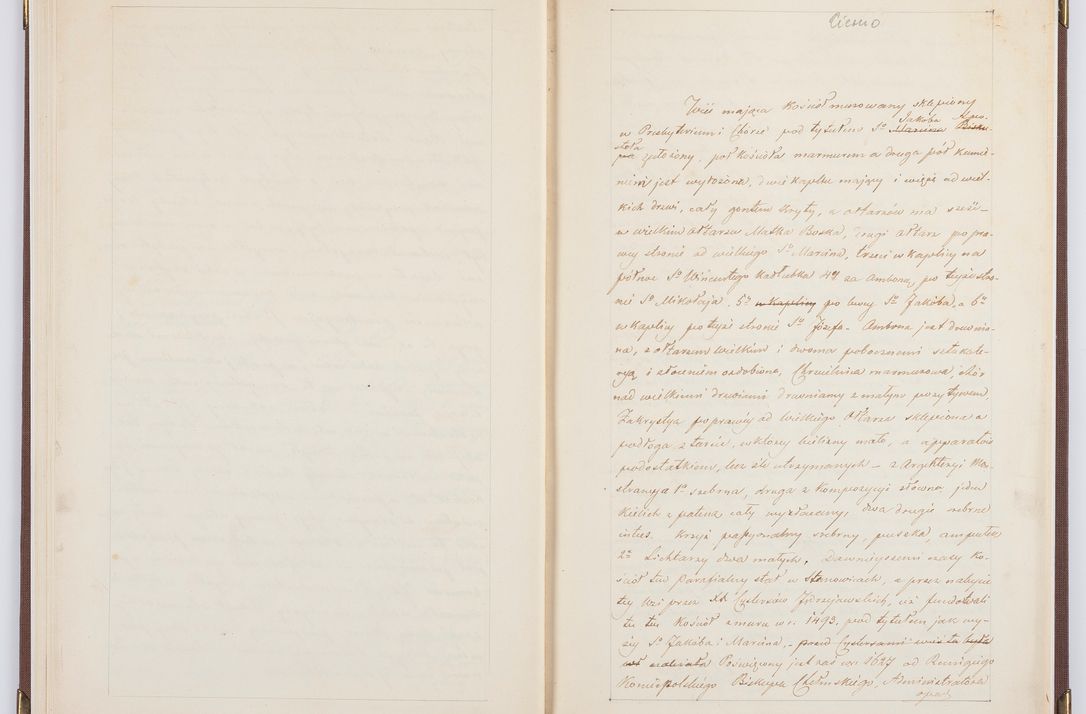 Cierno
Wieś mająca Kościół murowany sklepiony
w Presbyterium i Chórze pod tytułem Sgo Marcina Bisku- Jakóba Apo-
pa stoła założony, pół Kościoła marmurem a druga pół kamie-
niem jest wyłożona, dwie kapelki mający i wieże od wiel-
kich drzwi, cały gontem kryty, a ołtarzów ma sześć –
w wielkim ołtarzu Matka Boska, drugi ołtarz po pra-
wej stronie od wielkiego Sgo Marcina, trzeci w kaplicy na
północ Sgo Wincentego Kadłubka 4ty za Amboną, po tejże stro-
nie Sgo Mikołaja. 5ty w Kaplicy po lewej Sgo Jakóba, a 6ty
w Kaplicy po tejże stronie Sgo Józefa. Ambona jest drewnia-
na, z ołtarzem wielkim i dwoma pobocznemi sztukate-
ryą i złoceniem ozdobiona, Chrzcielnica marmurowa, chór
nad wielkiemi drzwiami drewniany z małym pozytywem.
Zakrystya po prawej od wielkiego ołtarza sklepiona a
podłoga z tarcic, w której bielizny mało, a apparatów
podostatkiem, lecz źle utrzymanych – z Argenteryi Mon-
strancya 1na srebrna, druga z kompozycyi złowna, jeden
Kielich z pateną cały wyzłacany, dwa drugie srebrne
intus. Krzyż passyonalny srebrny, puszka, ampułek
2ie Lichtarzy dwa małych. Dawniejszemi czasy Ko-
ściół tu Parafialny stał w Stanowicach, a przez nabycie
tej Wsi przez XX. Cystersów Jędrzejowskich, ciż fundowali
tu ten Kościół z muru w r. 1493. pod tytułem jak wy-
żej Sgo Jakóba i Marcina, – przed Cystersami wieś ta była
należała Poświęcony jest zaś w r. 1627 od Remigiego
Koniecpolskiego Biskupa Chełmskiego, Administratora
opac